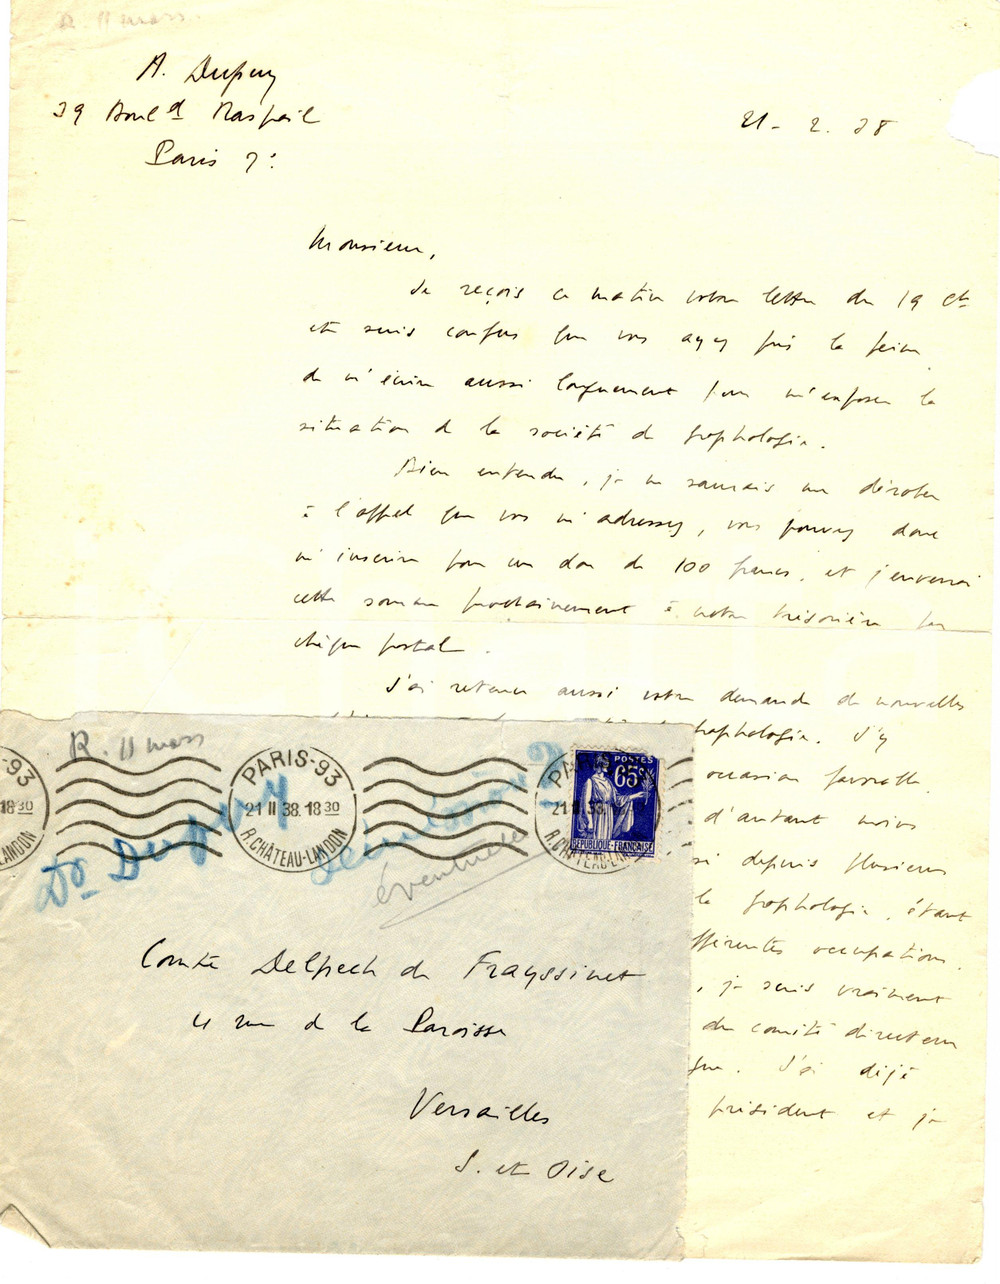 R. 11 mars.
A. Dupuy
39 Boul^d Raspail
Paris 7e
21 - 2. 38
Monsieur,
Je reçois ce matin votre lettre du 19 ct
et suis confus que vous ayez pris la peine
de m'écrire aussi longuement pour m'exposer la
situation de la société de graphologie.
Bien entendu, je ne saurais me dérober
à l'appel que vous m'adressez, vous pouvez donc
m'inscrire pour un don de 100 francs, et j'enverrai
cette somme prochainement à notre trésorière par
chèque postal.
J'ai retenu aussi votre demande de nouvelles
graphologie. J'y
occasion favorable.
d'autant moins
si depuis plusieurs
la graphologie, étant
fférentes occupations.
, je suis vraiment
du comité directeur
que. J'ai déjà
président et je
R. 11 mars
-93
18 30
LANDON
PARIS-93
21 II 38. 18 30
R. CHÂTEAU-LANDON
PARIS
21 II 38
R. CHÂTEAU-LAN
POSTES
65c
RÉPUBLIQUE-FRANÇAISE
Dr Dupuy
démission?
éventuelle
Comte Delpech de Frayssinet
11 rue de la Paroisse
Versailles
S. et Oise